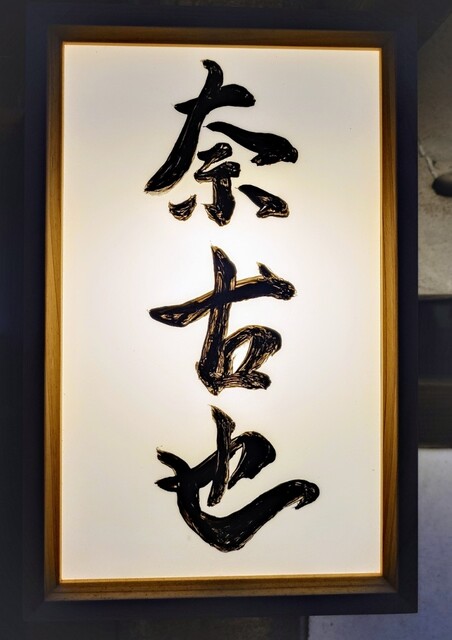 奈古也